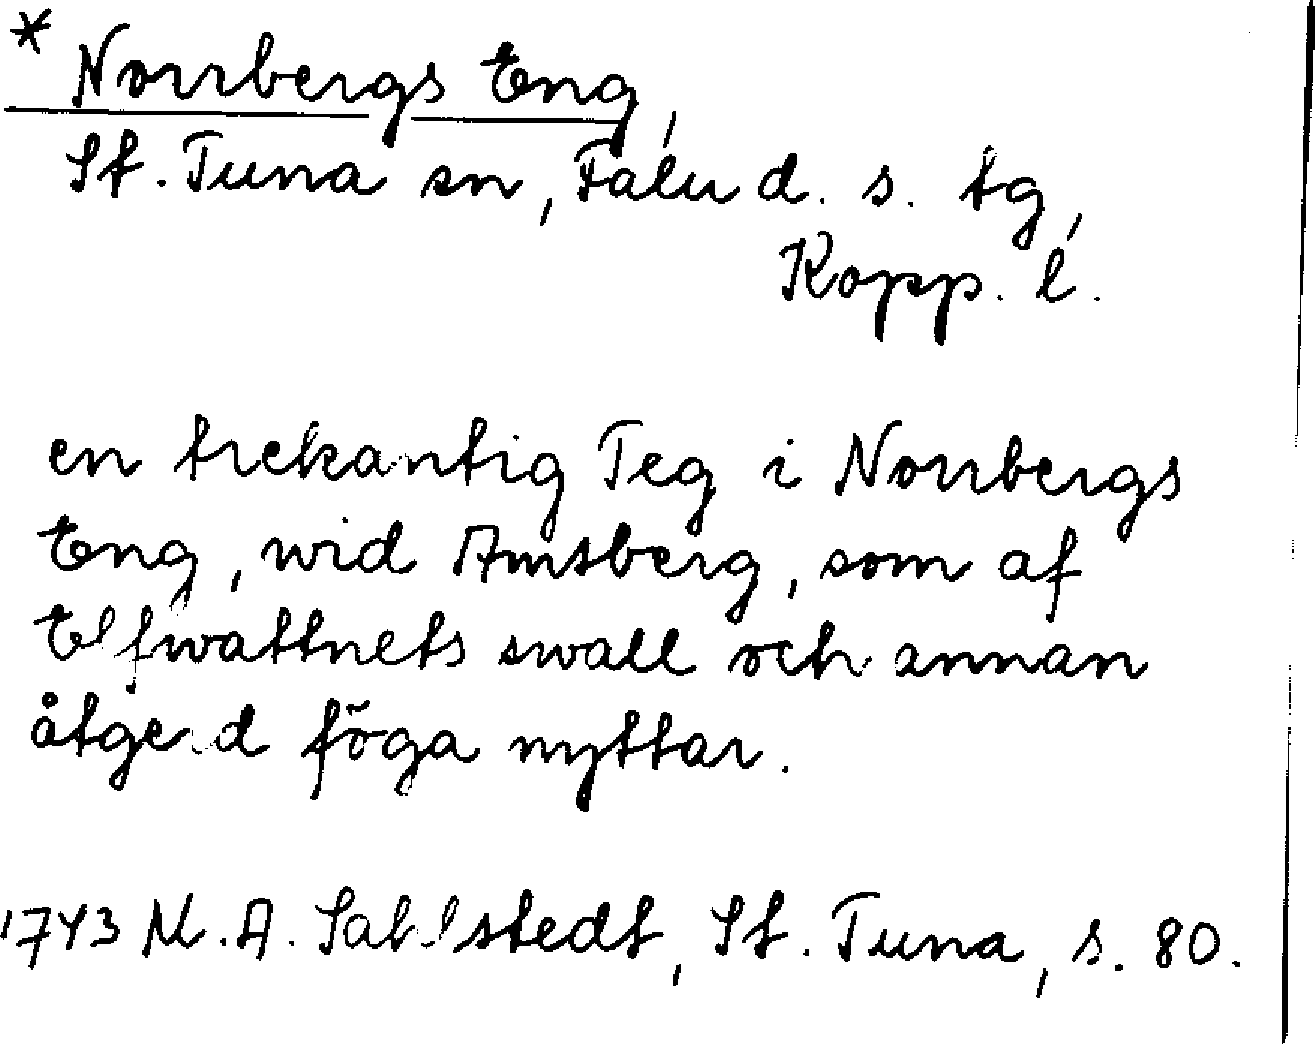 * Norrbergs Eng,
St. Tuna sn, Falu d. s. tg,
Kopp. l.
en trekantig Teg i Norrbergs
Eng, wid Amsberg, som af
Elfwattnets swall och annan
åtgerd föga nyttar.
1743 M. A. Sahlstedt, St. Tuna, s. 80.